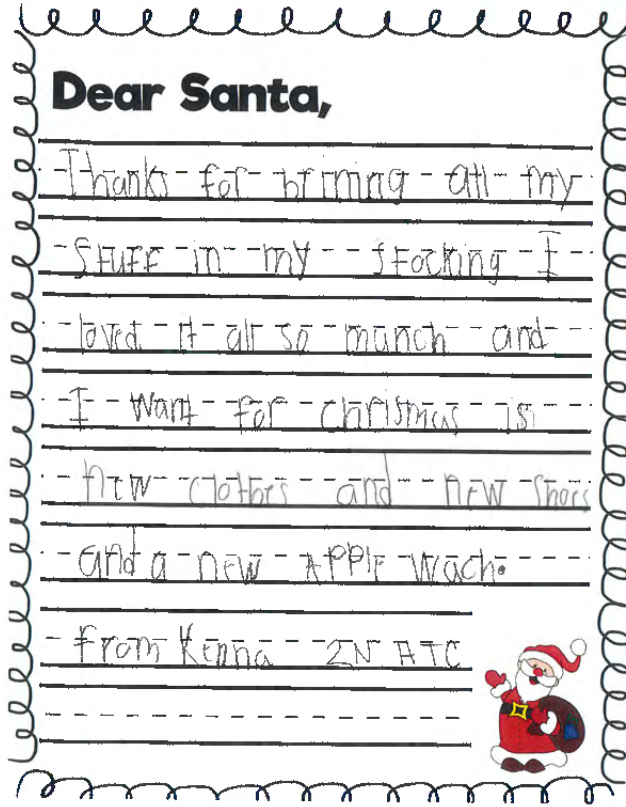 Dear Santa,
Thanks for brining all my
stuff in my stocking I
loved it all so munch and
I want for christmas is
new clothes and new shoes
and a new Apple wach.
from Kenna 2N ATC